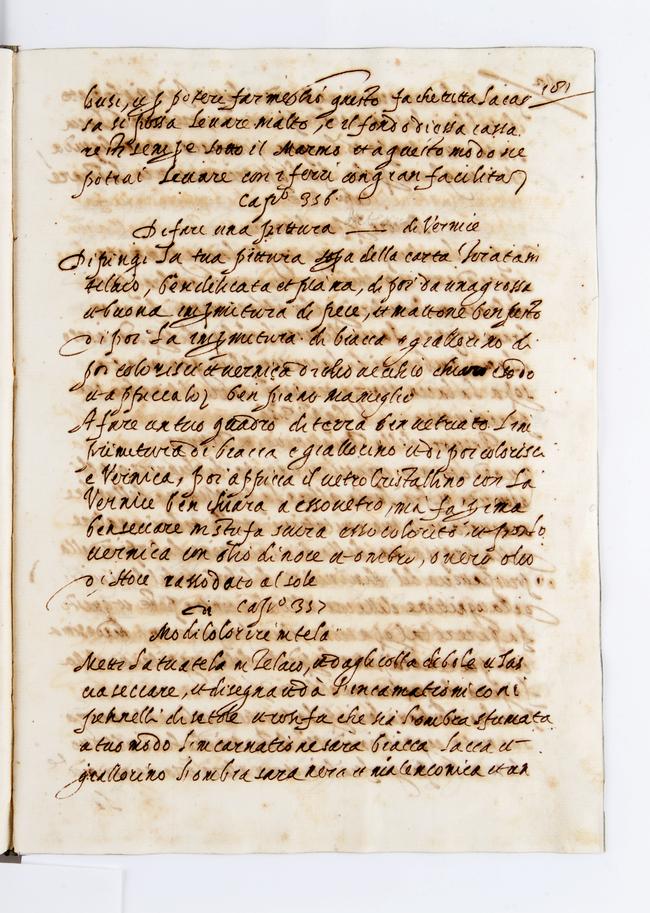 181
busi, et p potere far meglio questo fa che tutta la cas
sa si possa levare in alto, e il fondo di essa cassa
resti sempre sotto il Marmo et a questo modo ne
potrai levare con i ferri con gran facilita
Capº 356
Di fare una pittura di Vernice
Dipingi la tua pittura sopa della carta
telaio, ben delicata et piana, di poi da una grossa
et buona imprimitura di pece, et mattone ben pesto
di poi la imprimitura di biacca e giallorino di
poi colorisci et vernica di olio vecchio chiaro e sodo
ben piano
A fare un tuo quadro di terra ben vetriato l'im
primitura di biacca e giallorino et di poi colorisci
e Vernica, poi appicca il vetro Cristallino con la
Vernice ben chiara a esso vetro, ma fa prima
ben seccare in stufa esso colorito
vernica con olio di noce et ombra, overo olio
di Noce rassodato al sole
Capº 357
Modi Colorire in tela
Metti la tua tela in Telaio, et dagli colla debole et las
cia seccare, et disegna et dà l'incarnationi con i
pennelli di setole et con fa che sia l'ombra sfumata
a tuo modo l'incarnatione sara biacca lacca et
giallorino l'ombra sara nera et et un